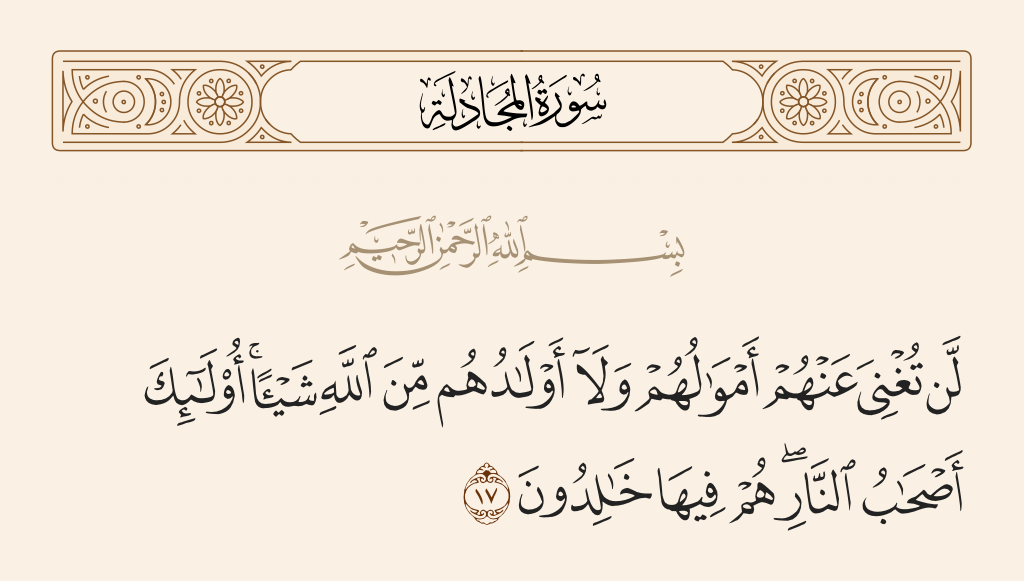 سُورَةُ المُجَادلَةِ
بِسْمِ ٱللَّهِ ٱلرَّحْمَٰنِ ٱلرَّحِيمِ
لَّن تُغْنِىَ عَنْهُمْ أَمْوَٰلُهُمْ وَلَآ أَوْلَـٰدُهُم مِّنَ ٱللَّهِ شَيْـًٔا ۚ أُو۟لَـٰٓئِكَ
أَصْحَـٰبُ ٱلنَّارِ ۖ هُمْ فِيهَا خَـٰلِدُونَ ١٧